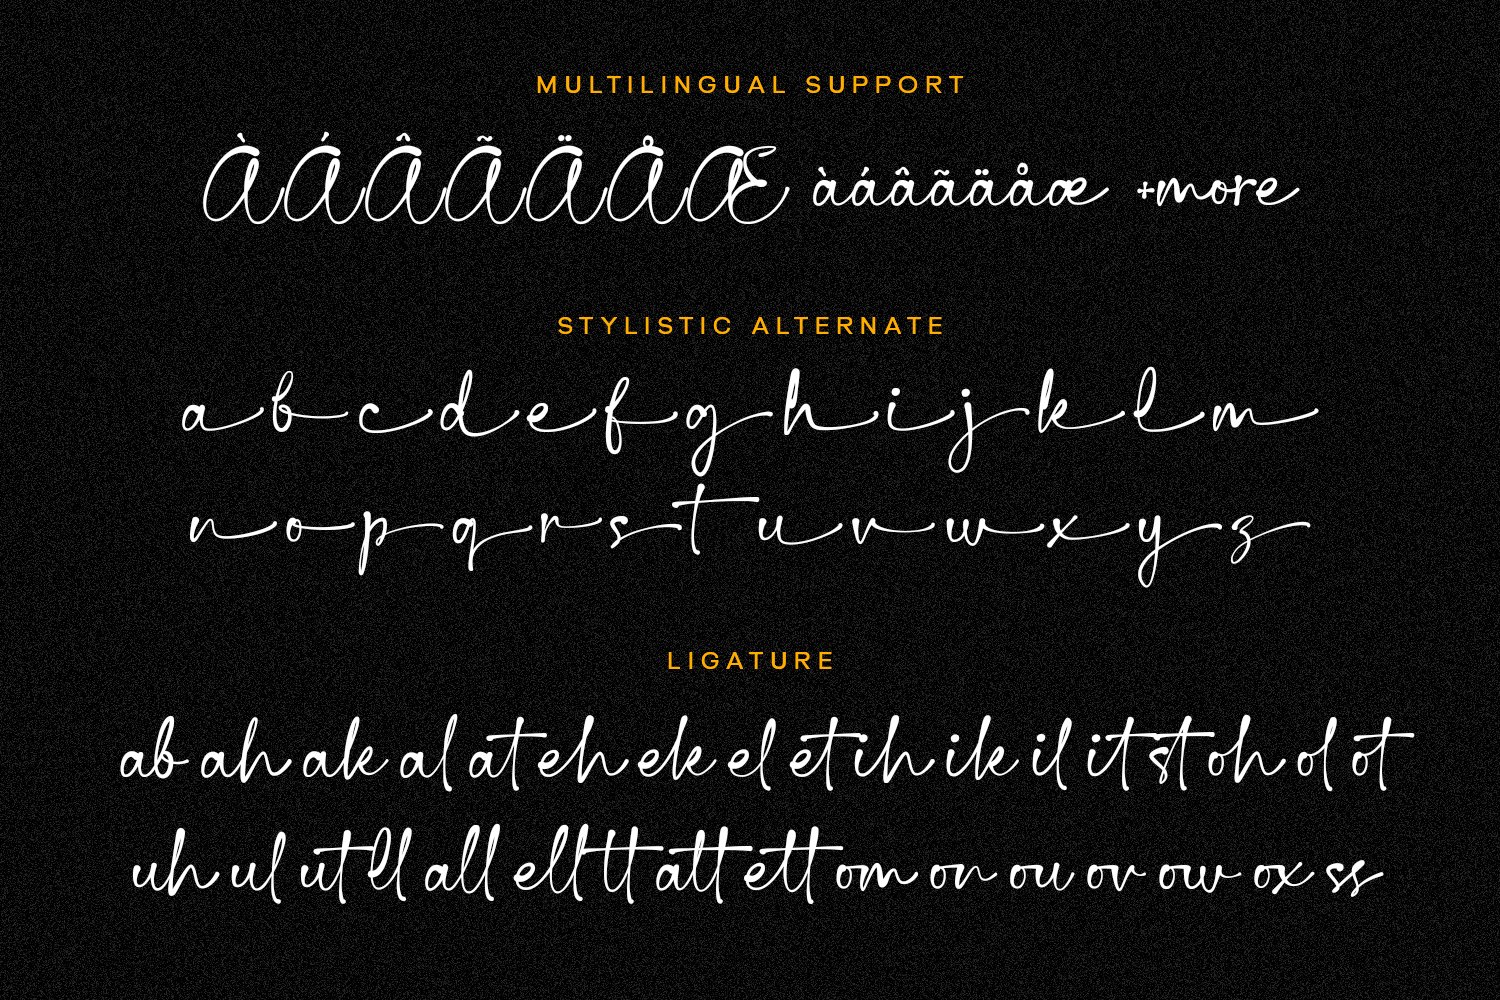 MULTILINGUAL SUPPORT
ÀÁÂÃÄÅÆ àáâãäåæ +more
STYLISTIC ALTERNATE
a b c d e f g h i j k l m
n o p q r s t u v w x y z
LIGATURE
ab ah ak al at eh ek el et ih ik il it st oh ol ot
uh ul ut ll all ell tt att ett om on ou ov ow ox ss